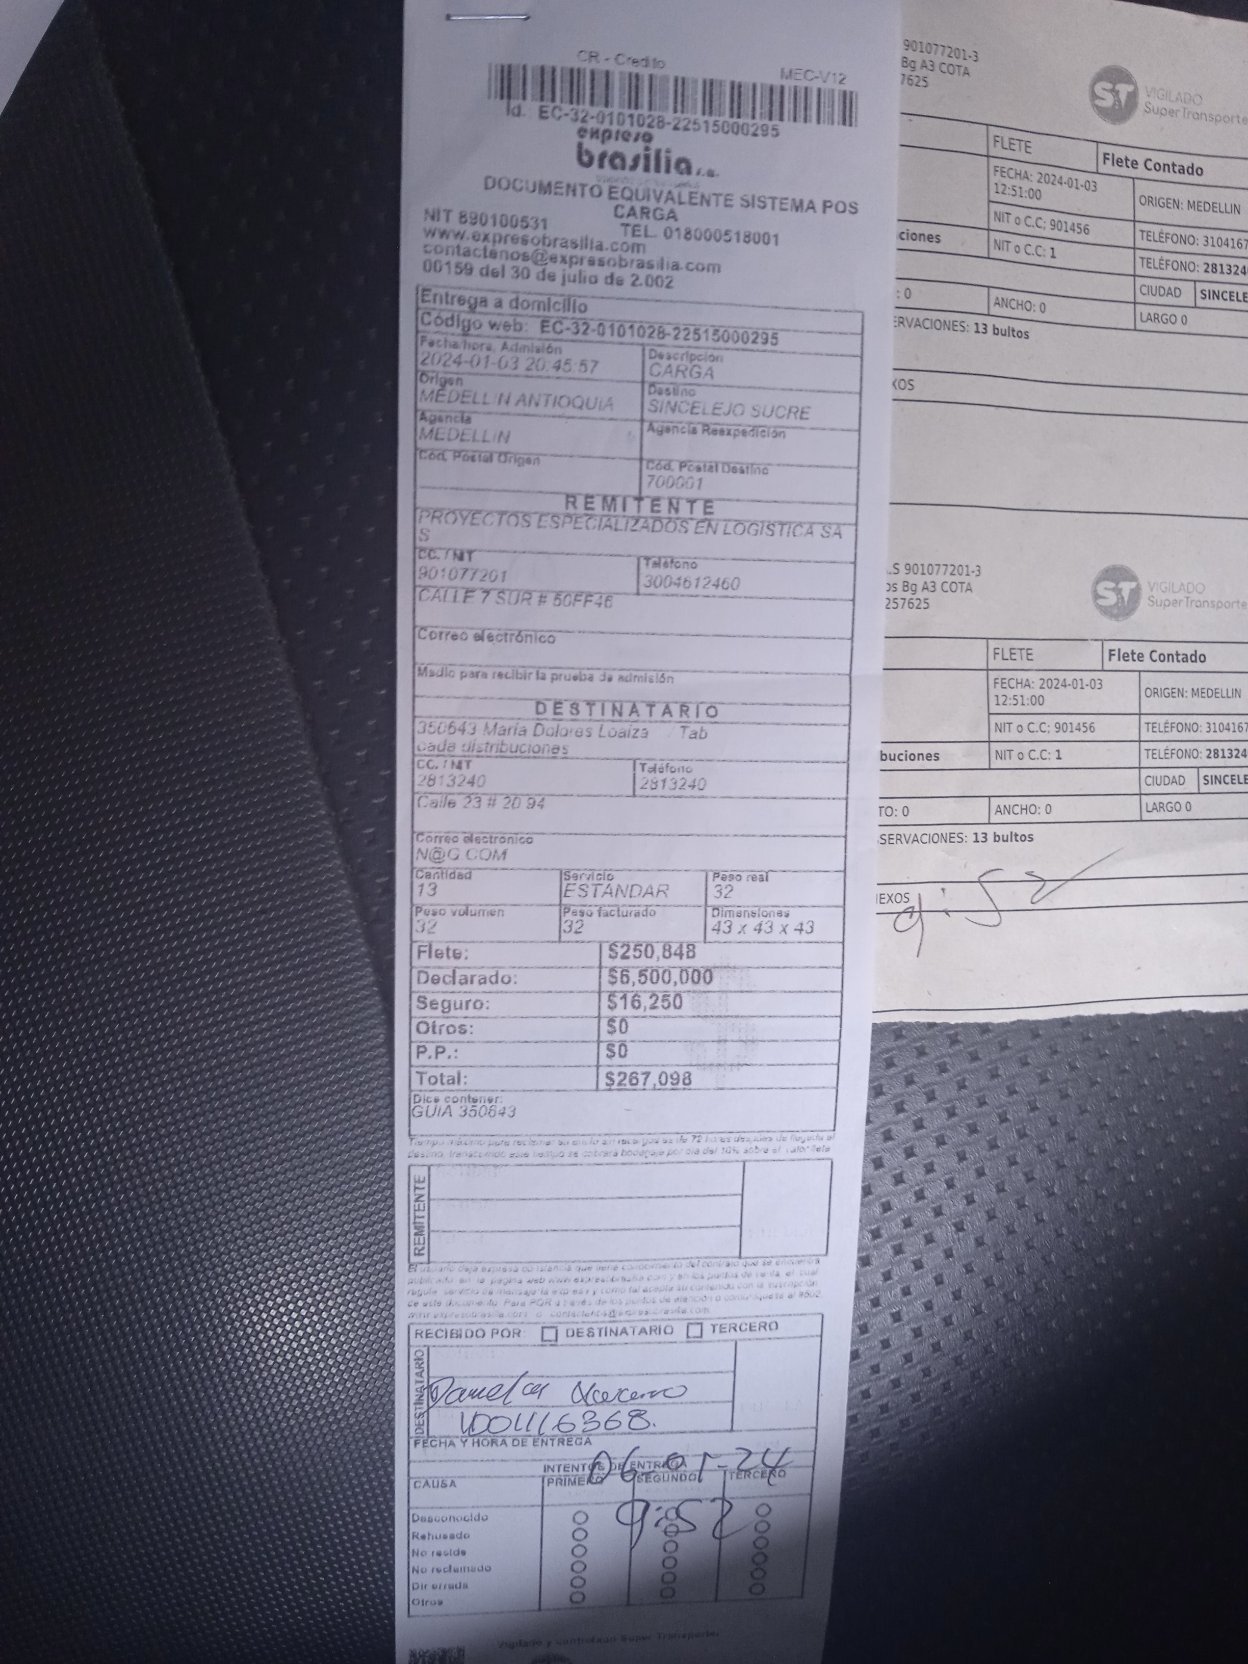 CR - Credito
MEC-V12
Id. EC-32-0101028-22515000295
expreso
brasilia s.a.
DOCUMENTO EQUIVALENTE SISTEMA POS
CARGA
NIT 890100531
TEL. 018000518001
www.expresobrasilia.com
contactenos@expresobrasilia.com
00159 del 30 de julio de 2.002
Entrega a domicilio
Código web: EC-32-0101028-22515000295
Fecha/hora. Admisión
2024-01-03 20:45:57
Descripción
CARGA
Origen
MEDELLIN ANTIOQUIA
Destino
SINCELEJO SUCRE
Agencia
MEDELLIN
Agencia Reexpedición
Cód. Postal Origen
Cód. Postal Destino
700001
REMITENTE
PROYECTOS ESPECIALIZADOS EN LOGISTICA SA
S
CC. / NIT
901077201
Teléfono
3004612460
CALLE 7 SUR # 50FF46
Correo electrónico
Medio para recibir la prueba de admisión
DESTINATARIO
350643 Maria Dolores Loaiza / Tab
cada distribuciones
CC. / NIT
2813240
Teléfono
2813240
Calle 23 # 20 94
Correo electrónico
N@G.COM
Cantidad
13
Servicio
ESTANDAR
Peso real
32
Peso volumen
32
Peso facturado
32
Dimensiones
43 x 43 x 43
Flete: $250,848
Declarado: $6,500,000
Seguro: $16,250
Otros: $0
P.P.: $0
Total: $267,098
Dice contener:
GUIA 350643
REMITENTE
RECIBIDO POR: DESTINATARIO TERCERO
DESTINATARIO
FECHA Y HORA DE ENTREGA
06-01-24
9:52
INTENTOS DE ENTREGA
CAUSA
PRIMERO SEGUNDO TERCERO
Desconocido
Rehusado
No reside
No reclamado
Dir errada
Otros
Vigilado y controlado Super Transporte
901077201-3
Bg A3 COTA
7625
ST
VIGILADO
SuperTransporte
FLETE
Flete Contado
FECHA: 2024-01-03
12:51:00
ORIGEN: MEDELLIN
NIT o C.C: 901456
TELÉFONO: 3104167
ciones
NIT o C.C: 1
TELÉFONO: 281324
CIUDAD
SINCELE
: 0
ANCHO: 0
LARGO 0
ERVACIONES: 13 bultos
XOS
.S 901077201-3
os Bg A3 COTA
257625
ST
VIGILADO
SuperTransporte
FLETE
Flete Contado
FECHA: 2024-01-03
12:51:00
ORIGEN: MEDELLIN
NIT o C.C: 901456
TELÉFONO: 3104167
buciones
NIT o C.C: 1
TELÉFONO: 281324
CIUDAD
SINCELE
TO: 0
ANCHO: 0
LARGO 0
SERVACIONES: 13 bultos
EXOS
9:52